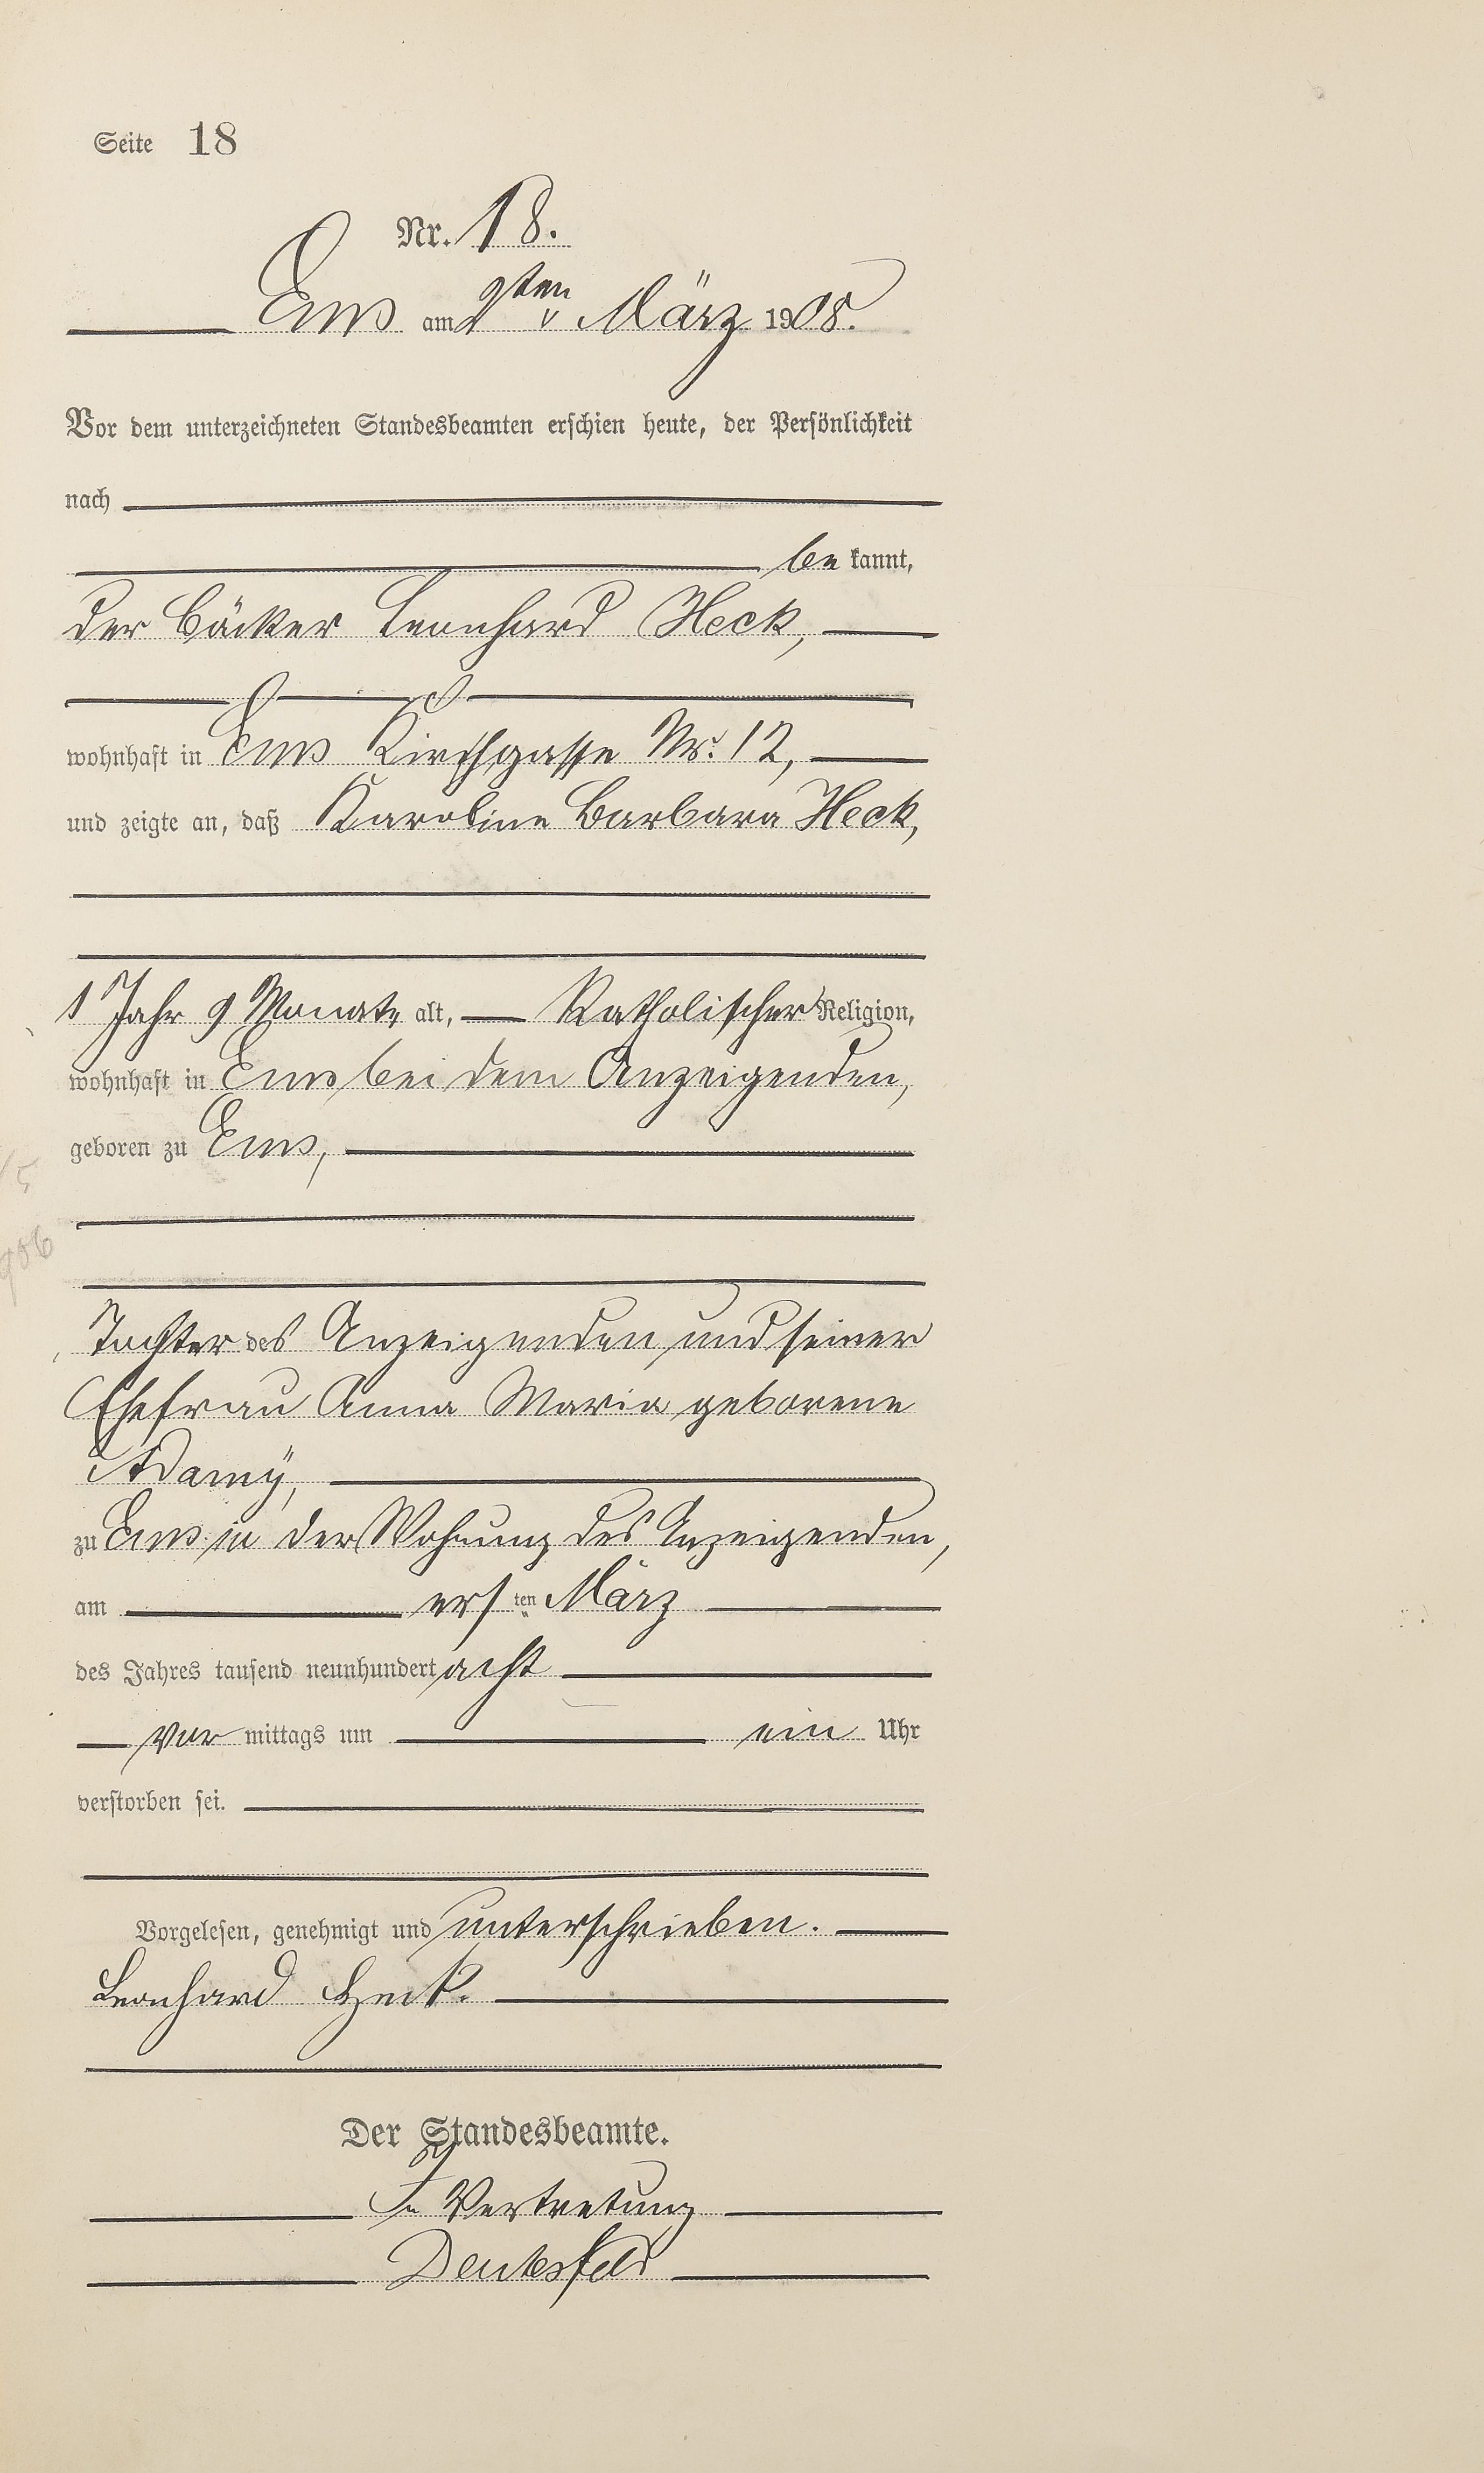 Seite 18
Nr. 18.
Ems am 2ten März 1908.
Vor dem unterzeichneten Standesbeamten erschien heute, der Persönlichkeit
nach
be kannt,
der Bäcker Leonhard Heck,
wohnhaft in Ems Kirchgasse Nr. 12,
und zeigte an, daß Karoline Barbara Heck,
1 Jahr 9 Monate alt, Katholischer Religion,
wohnhaft in Ems bei dem Anzeigenden,
geboren zu Ems,
Tochter des Anzeigenden und seiner
Ehefrau Anna Maria geborene
Adamÿ,
zu Ems in der Wohnung des Anzeigenden,
am ersten März
des Jahres tausend neunhundert acht
vor mittags um ein Uhr
verstorben sei.
Vorgelesen, genehmigt und unterschrieben.
Leonhard Heck.
Der Standesbeamte.
In Vertretung